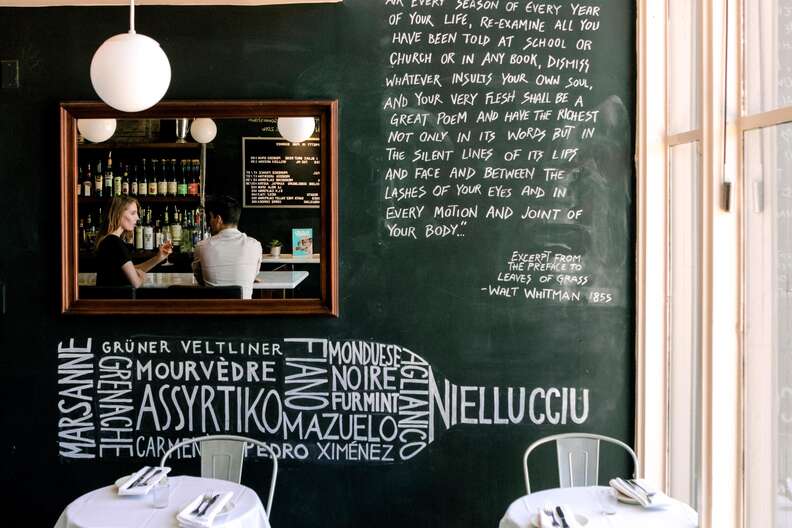 AIR EVERY SEASON OF EVERY YEAR
OF YOUR LIFE, RE-EXAMINE ALL YOU
HAVE BEEN TOLD AT SCHOOL OR
CHURCH OR IN ANY BOOK, DISMISS
WHATEVER INSULTS YOUR OWN SOUL,
AND YOUR VERY FLESH SHALL BE A
GREAT POEM AND HAVE THE RICHEST
NOT ONLY IN ITS WORDS BUT IN
THE SILENT LINES OF ITS LIPS
AND FACE AND BETWEEN THE
LASHES OF YOUR EYES AND IN
EVERY MOTION AND JOINT OF
YOUR BODY..."
EXCERPT FROM
THE PREFACE TO
LEAVES OF GRASS
-WALT WHITMAN 1855
MARSANNE
GRÜNER VELTLINER
GRENACHE
MOURVÈDRE
ASSYRTIKO
CARMEN
FIANO
MONDUESE
NOIRE
FURMINT
MAZUELO
PEDRO XIMÉNEZ
AGLIANICO
NIELLUCCIU